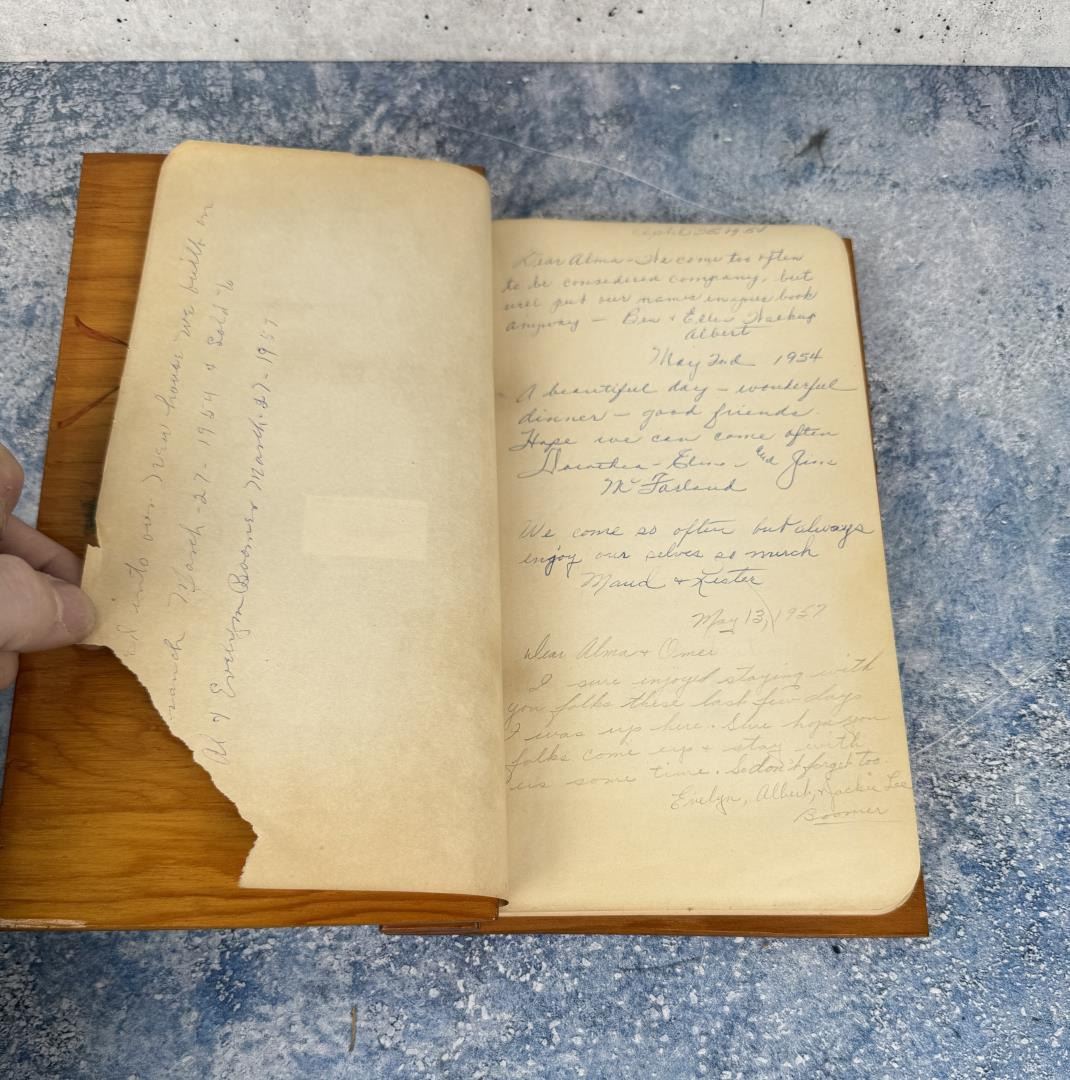 into our new house we built on
ranch March-27-1954 & sold to
Al & Evelyn Boomer March-27-1957
April 25 1954
Dear Alma - We come too often
to be considered company, but
will put our names in your book
anyway - Ben & Ellen
Albert
May 2nd 1954
A beautiful day - wonderful
dinner - good friends.
Hope we can come often
Dorothea - Elmo - and Jim
McFarland
We come so often but always
enjoy our selves so much
Maud & Lester
May 13, 1957
Dear Alma & Omer
I sure enjoyed staying with
you folks these last few days
I was up here. Sure hope you
folks come up & stay with
us some time. So don't forget too.
Evelyn, Albert, & Jackie Lee
Boomer